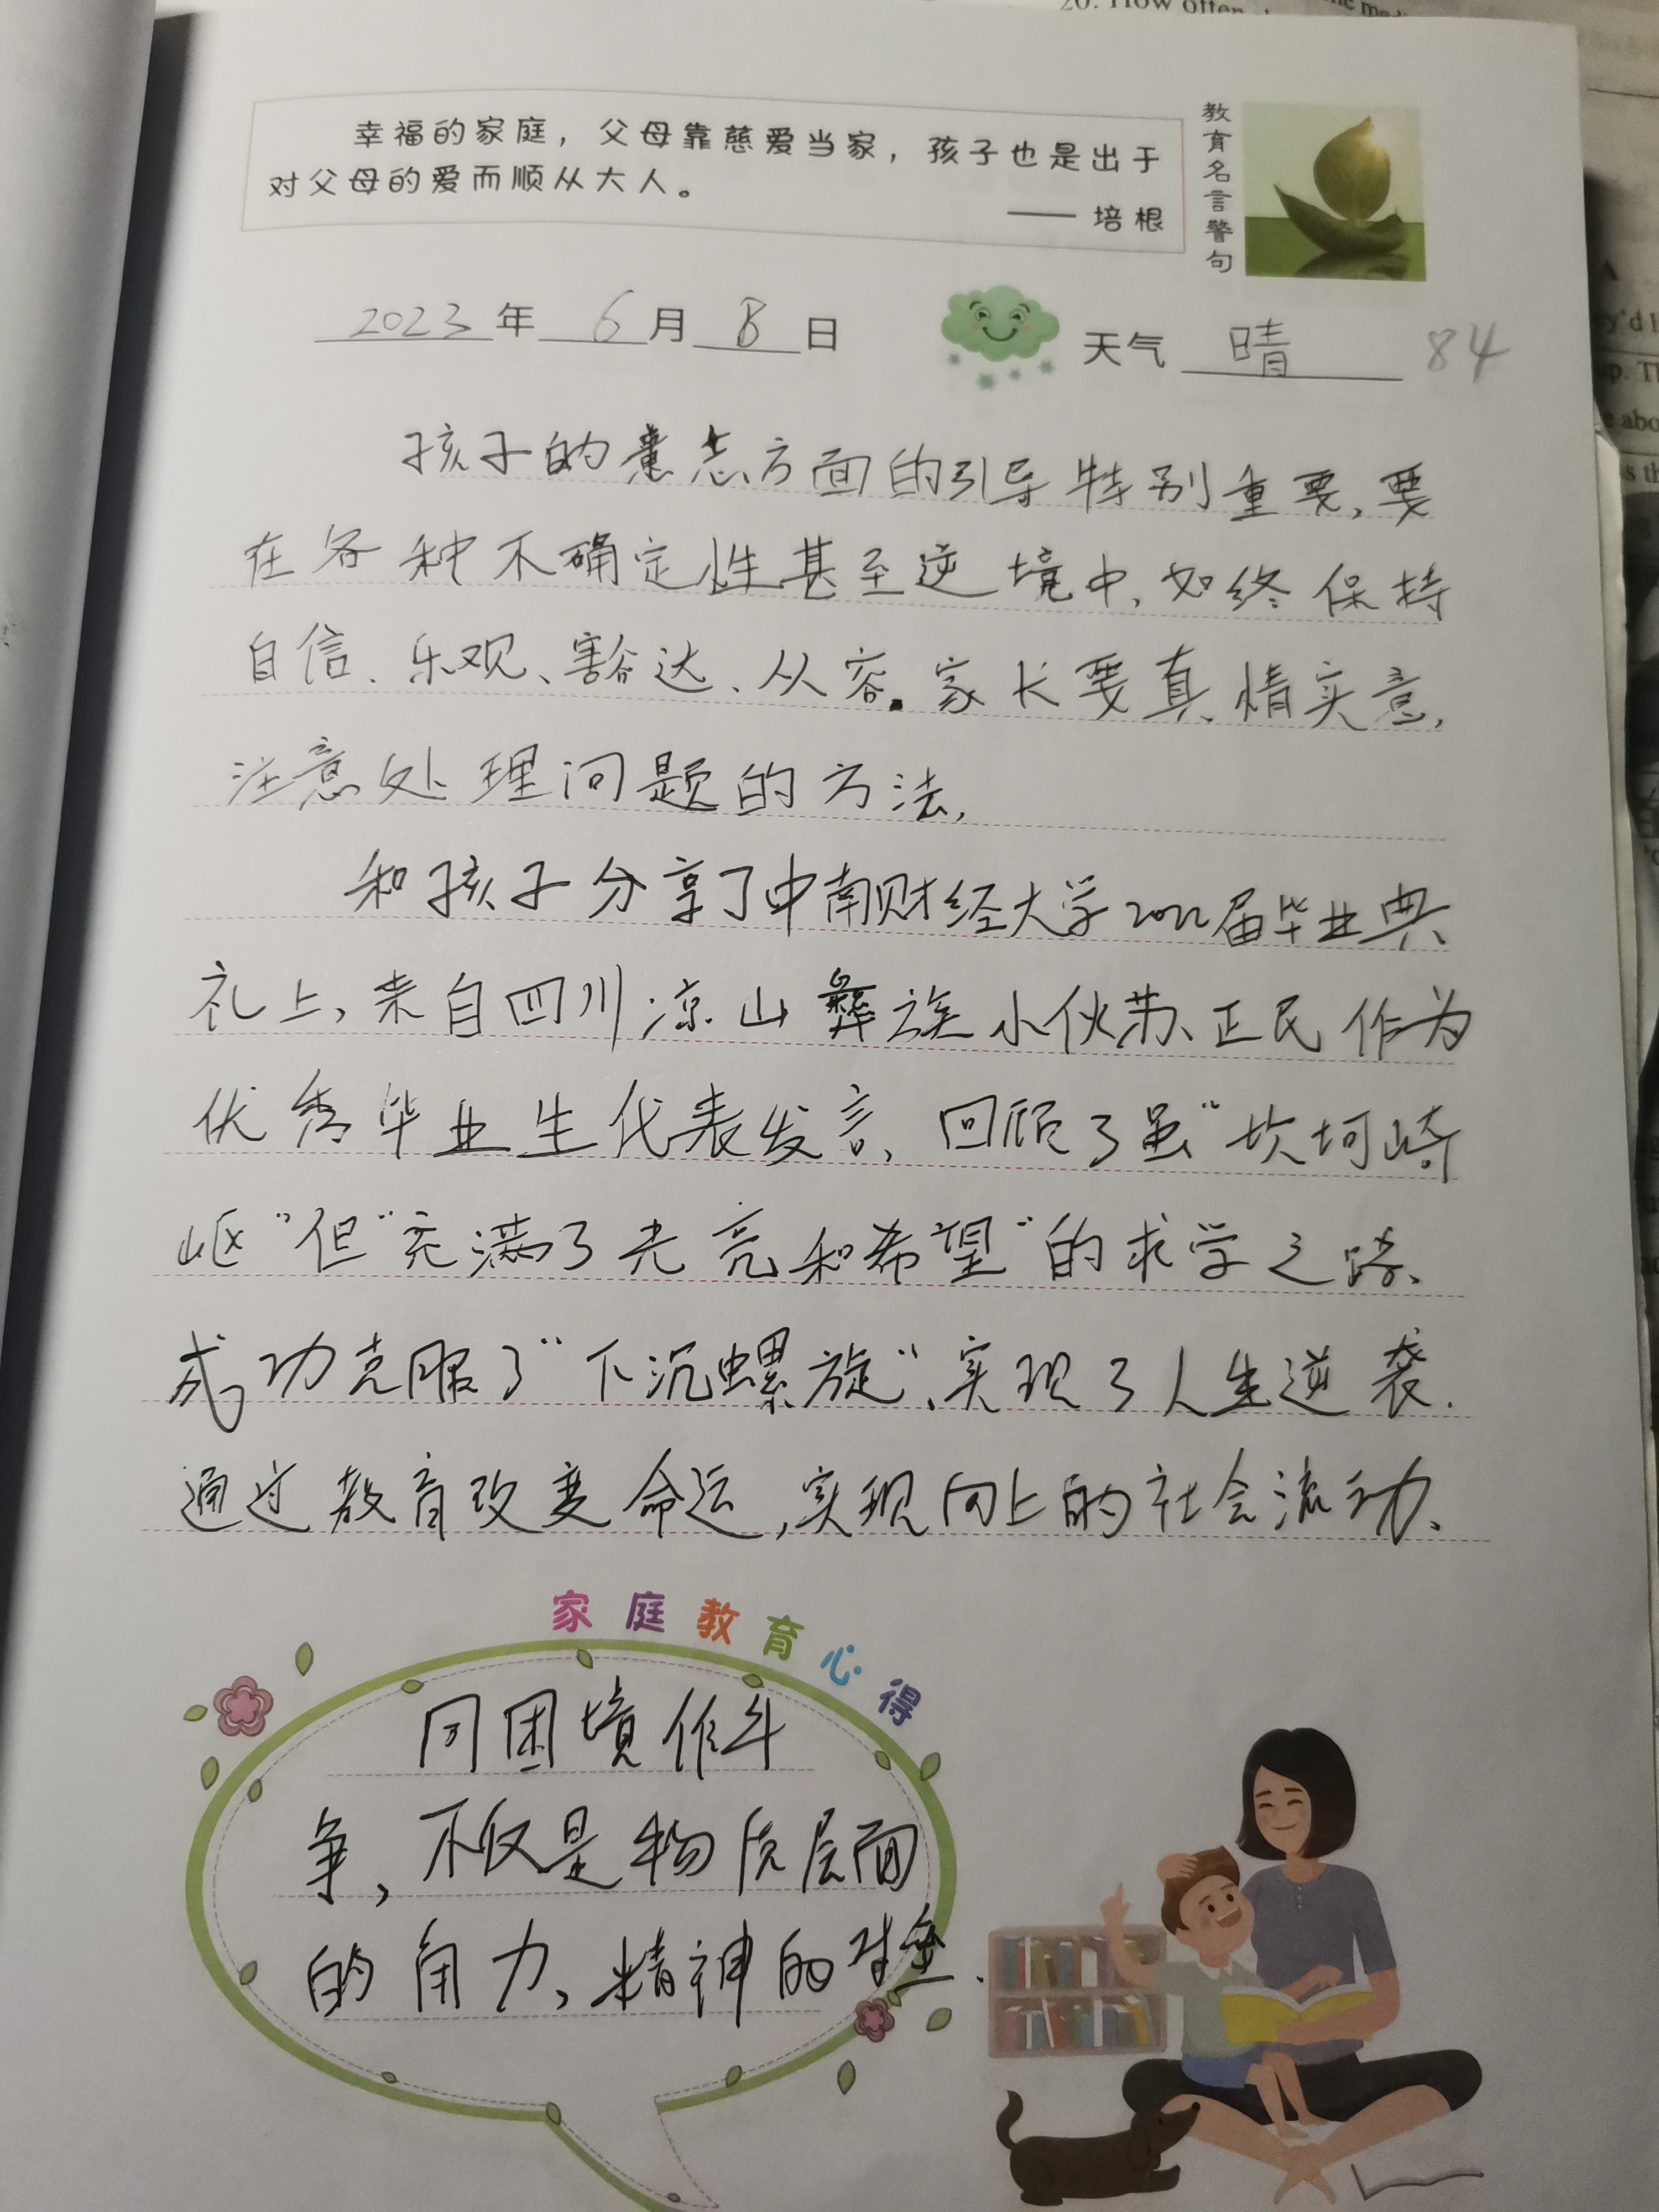 20. How often
幸福的家庭，父母靠慈爱当家，孩子也是出于
对父母的爱而顺从大人。
—— 培根
教育名言警句
2023年 6月 8日
天气 晴 84
孩子的意志方面的引导特别重要，要
在各种不确定性甚至逆境中，如终保持
自信、乐观、豁达、从容。家长要真情实意，
注意处理问题的方法，
和孩子分享了中南财经大学2022届毕业典
礼上，来自四川凉山彝族小伙苏正民作为
优秀毕业生代表发言，回顾了虽"坎坷崎
岖"但"充满了光亮和希望"的求学之路、
成功克服了"下沉螺旋"、实现了人生逆袭.
通过教育改变命运，实现向上的社会流动、
家庭教育心得
同困境作斗
争，不仅是物质层面
的角力、精神的对垒.